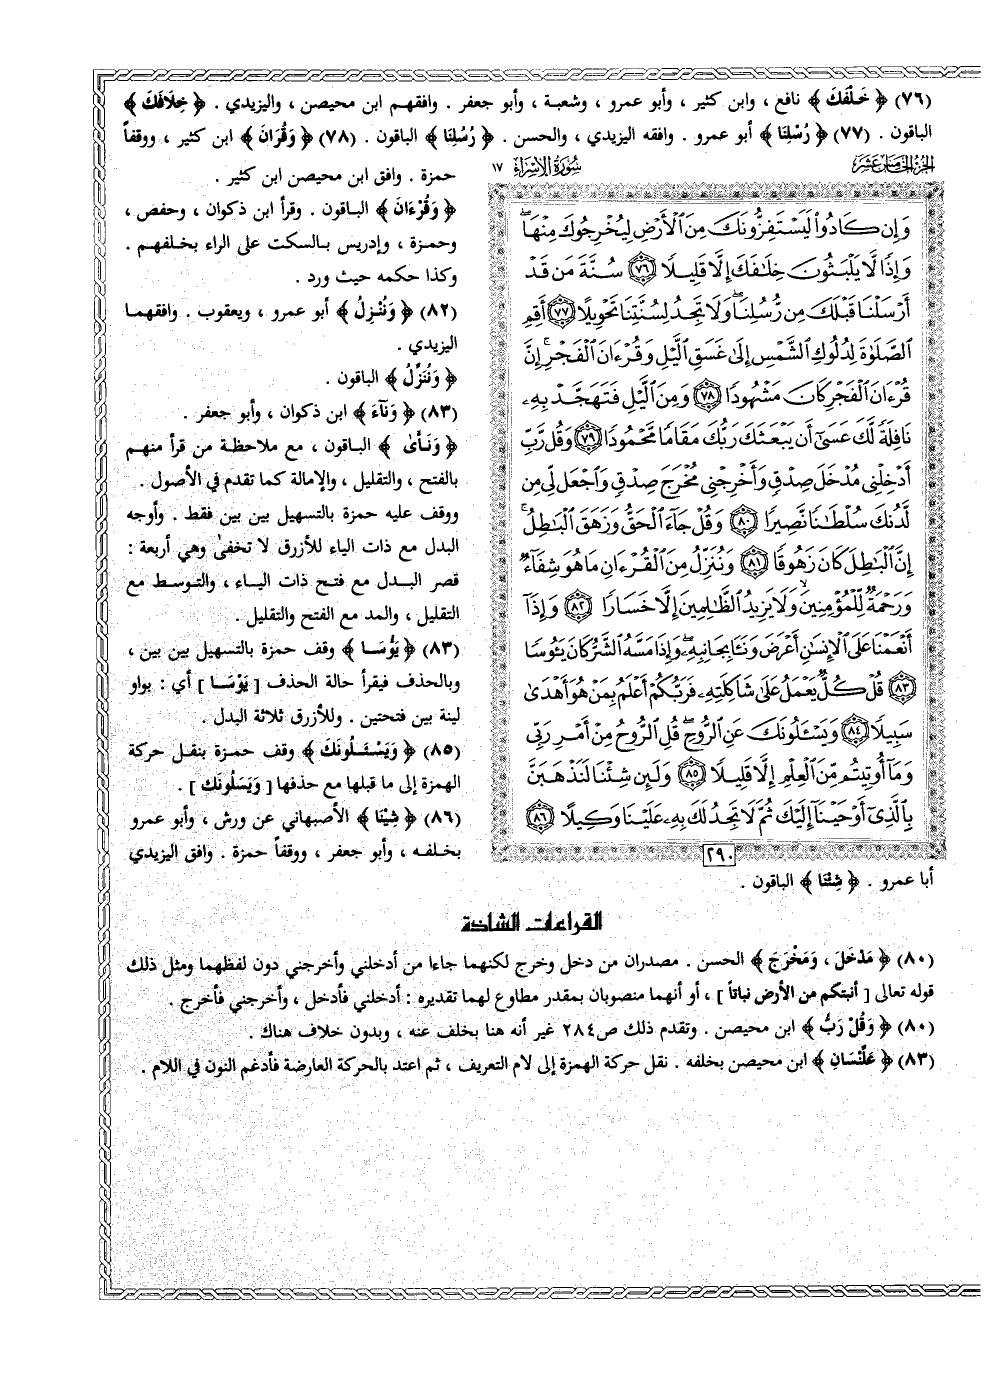 (٧٦) ﴿ خَلْفَكَ ﴾ نافع ، وابن كثير ، وأبو عمرو ، وشعبة ، وأبو جعفر . وافقهم ابن محيصن ، واليزيدي . ﴿ خِلَافَكَ ﴾
الباقون . (٧٧) ﴿ رُسْلِنَا ﴾ أبو عمرو . وافقه اليزيدي ، والحسن . ﴿ رُسُلِنَا ﴾ الباقون . (٧٨) ﴿ وَقُرَانَ ﴾ ابن كثير ، ووقفاً
حمزة . وافق ابن محيصن ابن كثير .
﴿ وَقُرْءَانَ ﴾ الباقون . وقرأ ابن ذكوان ، وحفص ،
وحمزة ، وإدريس بالسكت على الراء بخلفهم .
وكذا حكمه حيث ورد .
(٨٢) ﴿ وَنُنْزِلُ ﴾ أبو عمرو ، ويعقوب . وافقهما
اليزيدي .
﴿ وَنُنَزِّلُ ﴾ الباقون .
(٨٣) ﴿ وَنَآءَ ﴾ ابن ذكوان ، وأبو جعفر .
﴿ وَنَـأىٰ ﴾ الباقون ، مع ملاحظة من قرأ منهم
بالفتح ، والتقليل ، والإمالة كما تقدم في الأصول .
ووقف عليه حمزة بالتسهيل بين بين فقط . وأوجه
البدل مع ذات الياء للأزرق لا تخفىٰ وهي أربعة :
قصر البدل مع فتح ذات الياء ، والتوسط مع
التقليل ، والمد مع الفتح والتقليل .
(٨٣) ﴿ يَؤُسَا ﴾ وقف حمزة بالتسهيل بين بين ،
وبالحذف فيقرأ حالة الحذف [ يَوْسَا ] أي : بواو
لينة بين فتحتين . وللأزرق ثلاثة البدل .
(٨٥) ﴿ وَيَسْـَٔلُونَكَ ﴾ وقف حمزة بنقل حركة
الهمزة إلى ما قبلها مع حذفها [ وَيَسَلُونَك ] .
(٨٦) ﴿ شِيْنَا ﴾ الأصبهاني عن ورش ، وأبو عمرو
بخلفه ، وأبو جعفر ، ووقفاً حمزة . وافق اليزيدي
أبا عمرو . ﴿ شِئْنَا ﴾ الباقون .
الجزء الخامس عشر
سُورَةُ الإِسْرَاءِ ١٧
وَإِن كَادُوا۟ لَيَسْتَفِزُّونَكَ مِنَ ٱلْأَرْضِ لِيُخْرِجُوكَ مِنْهَا ۖ
وَإِذًا لَّا يَلْبَثُونَ خِلَٰفَكَ إِلَّا قَلِيلًا ٧٦ سُنَّةَ مَن قَدْ
أَرْسَلْنَا قَبْلَكَ مِن رُّسُلِنَا ۖ وَلَا تَجِدُ لِسُنَّتِنَا تَحْوِيلًا ٧٧ أَقِمِ
ٱلصَّلَوٰةَ لِدُلُوكِ ٱلشَّمْسِ إِلَىٰ غَسَقِ ٱلَّيْلِ وَقُرْءَانَ ٱلْفَجْرِ ۖ إِنَّ
قُرْءَانَ ٱلْفَجْرِ كَانَ مَشْهُودًا ٧٨ وَمِنَ ٱلَّيْلِ فَتَهَجَّدْ بِهِۦ
نَافِلَةً لَّكَ عَسَىٰٓ أَن يَبْعَثَكَ رَبُّكَ مَقَامًا مَّحْمُودًا ٧٩ وَقُل رَّبِّ
أَدْخِلْنِى مُدْخَلَ صِدْقٍ وَأَخْرِجْنِى مُخْرَجَ صِدْقٍ وَٱجْعَل لِّى مِن
لَّدُنكَ سُلْطَٰنًا نَّصِيرًا ٨٠ وَقُلْ جَآءَ ٱلْحَقُّ وَزَهَقَ ٱلْبَٰطِلُ ۚ
إِنَّ ٱلْبَٰطِلَ كَانَ زَهُوقًا ٨١ وَنُنَزِّلُ مِنَ ٱلْقُرْءَانِ مَا هُوَ شِفَآءٌ
وَرَحْمَةٌ لِّلْمُؤْمِنِينَ ۙ وَلَا يَزِيدُ ٱلظَّٰلِمِينَ إِلَّا خَسَارًا ٨٢ وَإِذَآ
أَنْعَمْنَا عَلَى ٱلْإِنسَٰنِ أَعْرَضَ وَنَـَٔا بِجَانِبِهِۦ ۖ وَإِذَا مَسَّهُ ٱلشَّرُّ كَانَ يَـُٔوسًا
٨٣ قُلْ كُلٌّ يَعْمَلُ عَلَىٰ شَاكِلَتِهِۦ فَرَبُّكُمْ أَعْلَمُ بِمَنْ هُوَ أَهْدَىٰ
سَبِيلًا ٨٤ وَيَسْـَٔلُونَكَ عَنِ ٱلرُّوحِ ۖ قُلِ ٱلرُّوحُ مِنْ أَمْرِ رَبِّى
وَمَآ أُوتِيتُم مِّنَ ٱلْعِلْمِ إِلَّا قَلِيلًا ٨٥ وَلَئِن شِئْنَا لَنَذْهَبَنَّ
بِٱلَّذِىٓ أَوْحَيْنَآ إِلَيْكَ ثُمَّ لَا تَجِدُ لَكَ بِهِۦ عَلَيْنَا وَكِيلًا ٨٦
٢٩٠
القراءات الشاذة
(٨٠) ﴿ مَدْخَلَ ، وَمَخْرَجَ ﴾ الحسن . مصدران من دخل وخرج لكنهما جاءا من أدخلني وأخرجني دون لفظهما ومثل ذلك
قوله تعالى [ أنبتكم من الأرض نباتاً ] ، أو أنهما منصوبان بمقدر مطاوع لهما تقديره : أدخلني فأدخل ، وأخرجني فأخرج .
(٨٠) ﴿ وَقُلْ رَبُّ ﴾ ابن محيصن . وتقدم ذلك ص٢٨٤ غير أنه هنا بخلف عنه ، وبدون خلاف هناك .
(٨٣) ﴿ عَلَّنْسَانِ ﴾ ابن محيصن بخلفه . نقل حركة الهمزة إلى لام التعريف ، ثم اعتد بالحركة العارضة فأدغم النون في اللام .